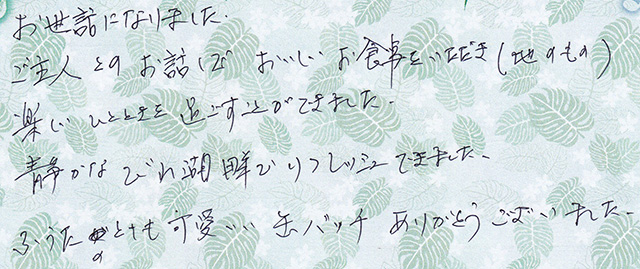 お世話になりました.
ご主人とのお話しで おいしいお食事をいただき(地のもの)
楽しいひとときを過ごすことができました.
静かなびわ湖畔でリフレッシュできました.
ふうたのとても可愛いい缶バッチ ありがとうございました.